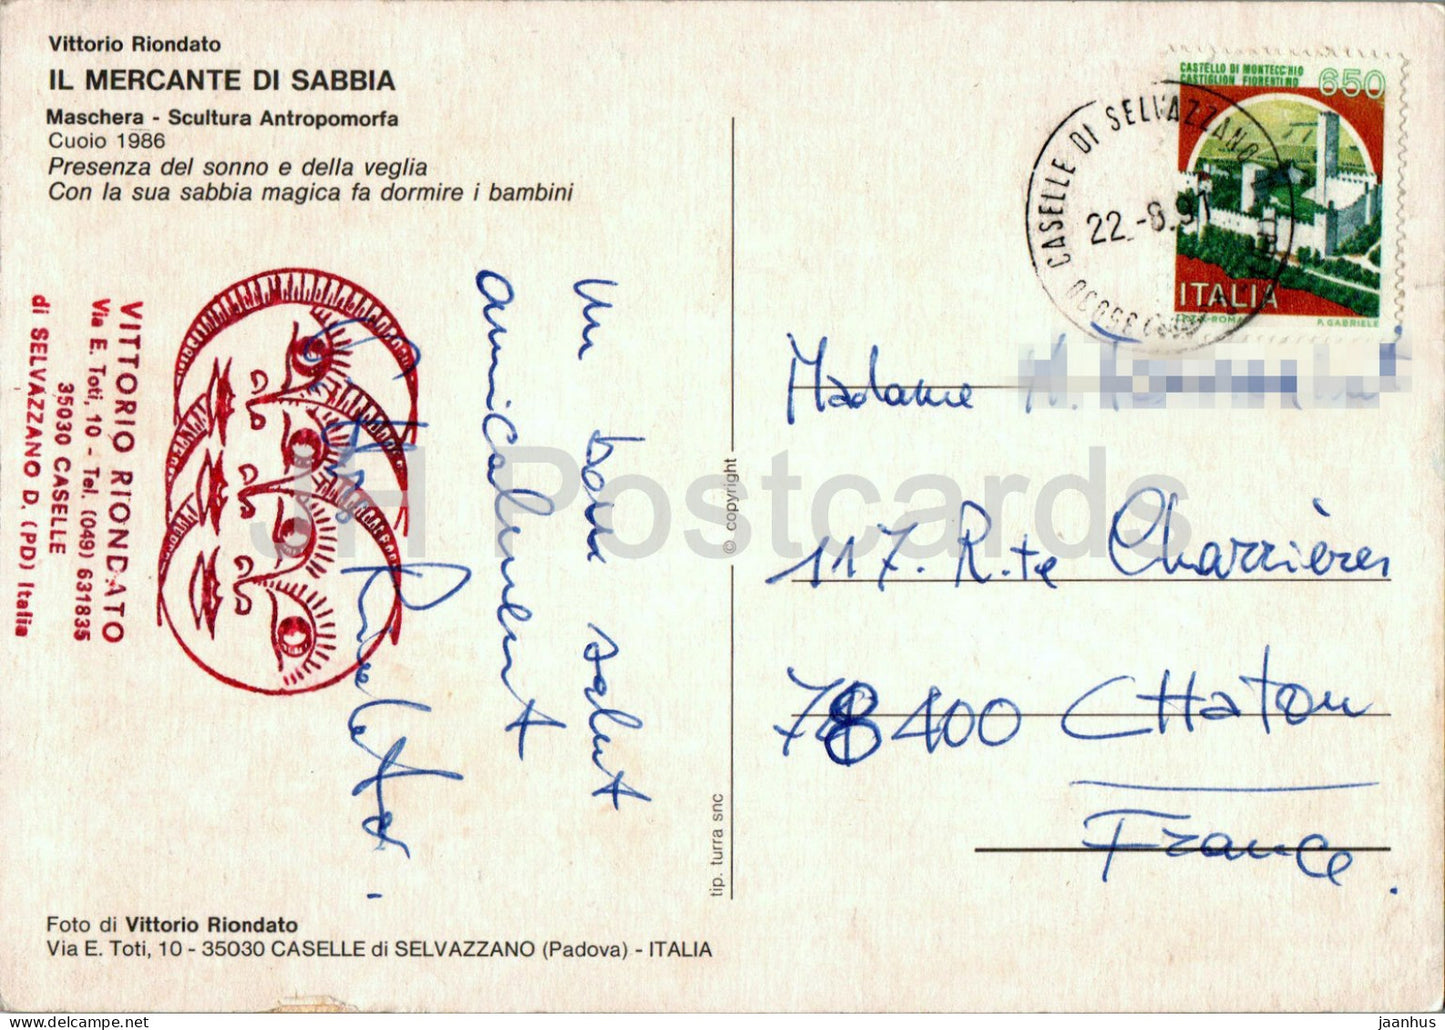 Vittorio Riondato
IL MERCANTE DI SABBIA
Maschera - Scultura Antropomorfa
Cuoio 1986
Presenza del sonno e della veglia
Con la sua sabbia magica fa dormire i bambini
VITTORIO RIONDATO
Via E. Toti, 10 - Tel. (049) 631835
35030 CASELLE
di SELVAZZANO D. (PD) Italia
Un bon salut
amicalment
Foto di Vittorio Riondato
Via E. Toti, 10 - 35030 CASELLE di SELVAZZANO (Padova) - ITALIA
© copyright
tip. turra snc
CASTELLO DI MONTECCHIO
CASTIGLION FIORENTINO
650
ITALIA
P. GABRIELE
35030 CASELLE DI SELVAZZANO
22.-8.91
Madame
117. R.te Charrières
78400 CHatou
France.
JH Postcards
jaanhus - https://www.delcampe.net
jaanhus